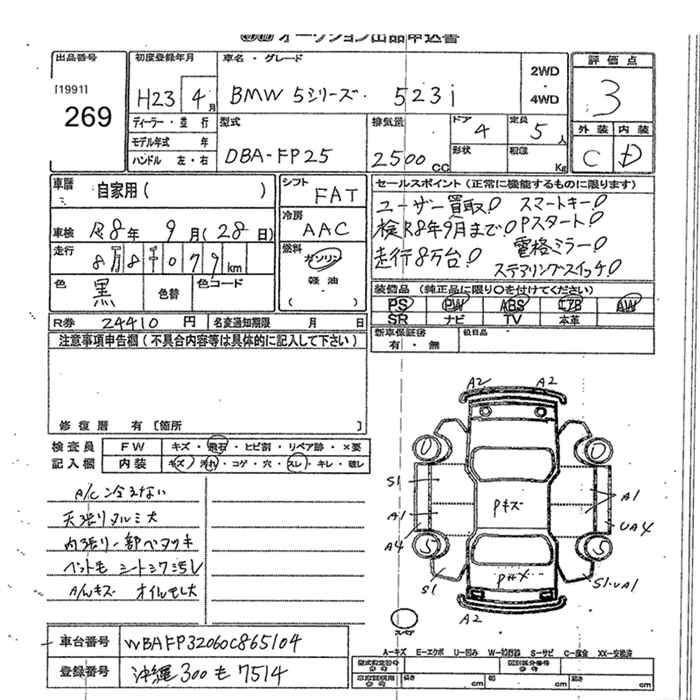 オークション出品申込書
出品番号
[1991]
269
初度登録年月
H23 4月
車名・グレード
BMW 5シリーズ 523i
2WD
4WD
評価点
3
外装 内装
C D
ディーラー・並行
モデル年式 年
ハンドル 左・右
型式
DBA-FP25
排気量
2500cc
ドア
4
定員
5人
形状
積載
Kg
車歴
自家用( )
車検 R8年 9月(28日)
走行
km
色
黒
色替
色コード
シフト
FAT
冷房
AAC
燃料
ガソリン
軽油
( )
R券 24410円
名変通知期限 月 日
セールスポイント(正常に機能するものに限ります)
ユーザー買取! スマートキー!
検R8年9月まで! Pスタート!
走行8万台! 電格ミラー!
ステアリングスイッチ!
装備品(純正品に限り○を付けてください)
PS PW ABS エアB AW
SR ナビ TV 本革
新車保証書
有・無
後日品
注意事項申告欄(不具合内容等は具体的に記入して下さい)
修復歴 有[箇所
検査員
記入欄
FW キズ・飛石・ヒビ割・リペア跡・×要
内装 キズ・汚れ・コゲ・穴・スレ・キレ・破レ
A/C冷えない
天張りタルミ大
内張り一部ベタツキ
ペット毛 シートシワ
A/Wキズ オイルモレ大
A2 A2
S1
A1
A1
A4
UA4
Pキズ
S1
S1・UA1
A2
スペア
A-キズ E-エクボ U-凹み W-補修跡 S-サビ C-腐食 XX-交換済
車台番号 WBAFP32060C865104
登録番号 沖縄300も7514
型式指定番号
類別区分番号
長さ cm
幅 cm
高さ cm